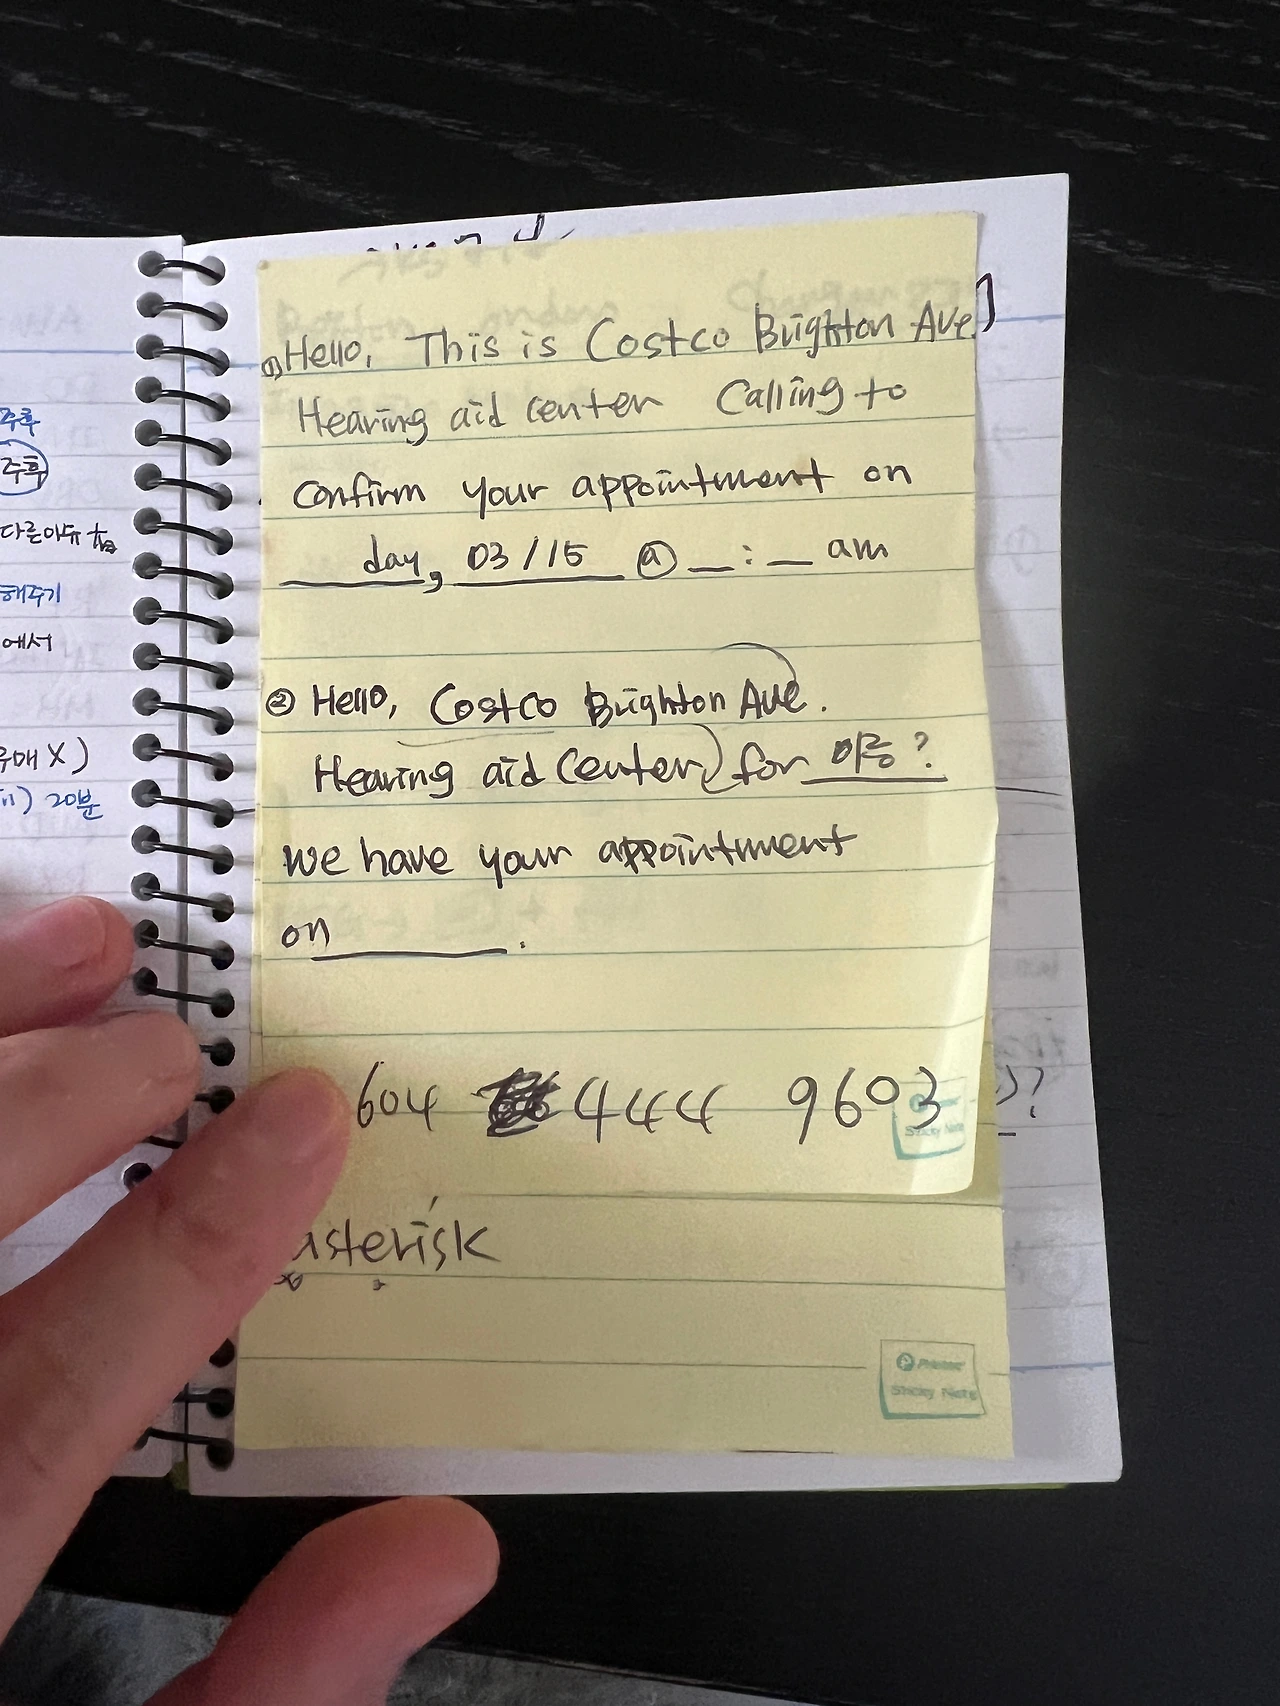 주후
주후
다른아뉴
해주기
에서
구매 X)
20분
① Hello, This is Costco Brighton Ave.
Hearing aid center Calling to
confirm your appointment on
___day, 03/15 @ _:_ am
② Hello, Costco Brighton Ave.
Hearing aid Center) for 이름?
We have your appointment
on ______.
604 444 9603
asterisk
Printec
Sticky Note